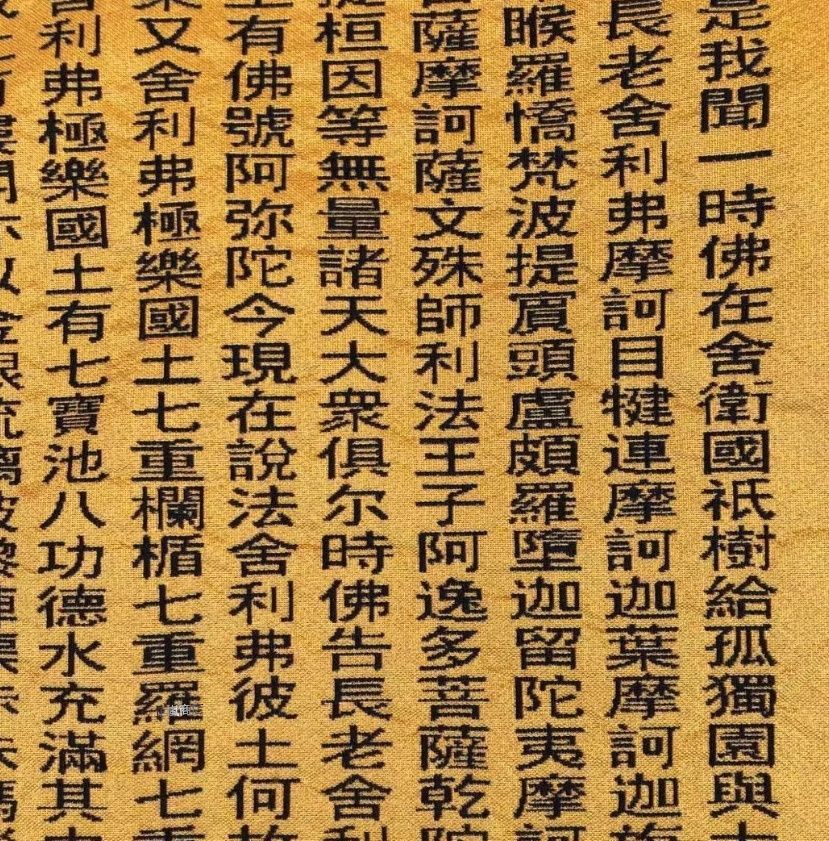 是我聞一時佛在舍衛國祇樹給孤獨園與
長老舍利弗摩訶目犍連摩訶迦葉摩訶迦
睺羅憍梵波提賔頭盧頗羅墮迦留陀夷摩訶
薩摩訶薩文殊師利法王子阿逸多菩薩乾陀
桓因等無量諸天大衆俱尔時佛告長老舍利
有佛號阿弥陀今現在說法舍利弗彼土何
又舍利弗極樂國土七重欄楯七重羅網七重
利弗極樂國土有七寶池八功德水充滿其